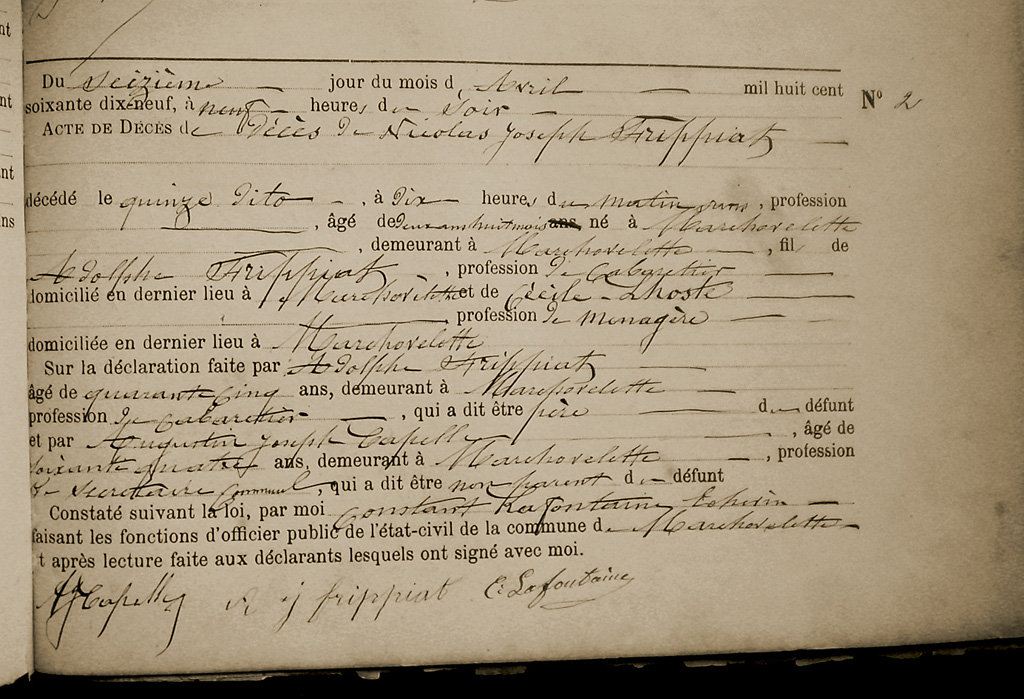 Du seizième jour du mois d'Avril mil huit cent
soixante dix-neuf, à neuf heures du soir
N° 2
ACTE DE DÉCÈS de Décès de Nicolas Joseph Frippiat
décédé le quinze dito, à dix heures du matin, profession
, âgé de deux ans huit mois ans, né à Marchovelette
, demeurant à Marchovelette, fil de
Adolphe Frippiat, profession de Cabaretier
domicilié en dernier lieu à Marchovelette et de Cécile Lhoste
profession de menagère
domiciliée en dernier lieu à Marchovelette
Sur la déclaration faite par Adolphe Frippiat
âgé de quarante cinq ans, demeurant à Marchovelette
profession de Cabaretier, qui a dit être père du défunt
et par Augustin Joseph Capelle, âgé de
soixante quatre ans, demeurant à Marchovelette, profession
de secrétaire communal, qui a dit être non parent du défunt
Constaté suivant la loi, par moi Constant Lafontaine Echevin
faisant les fonctions d'officier public de l'état-civil de la commune de Marchovelette
t après lecture faite aux déclarants lesquels ont signé avec moi.
AJCapelle j frippiat C. Lafontaine
nt
nt
nt
ns